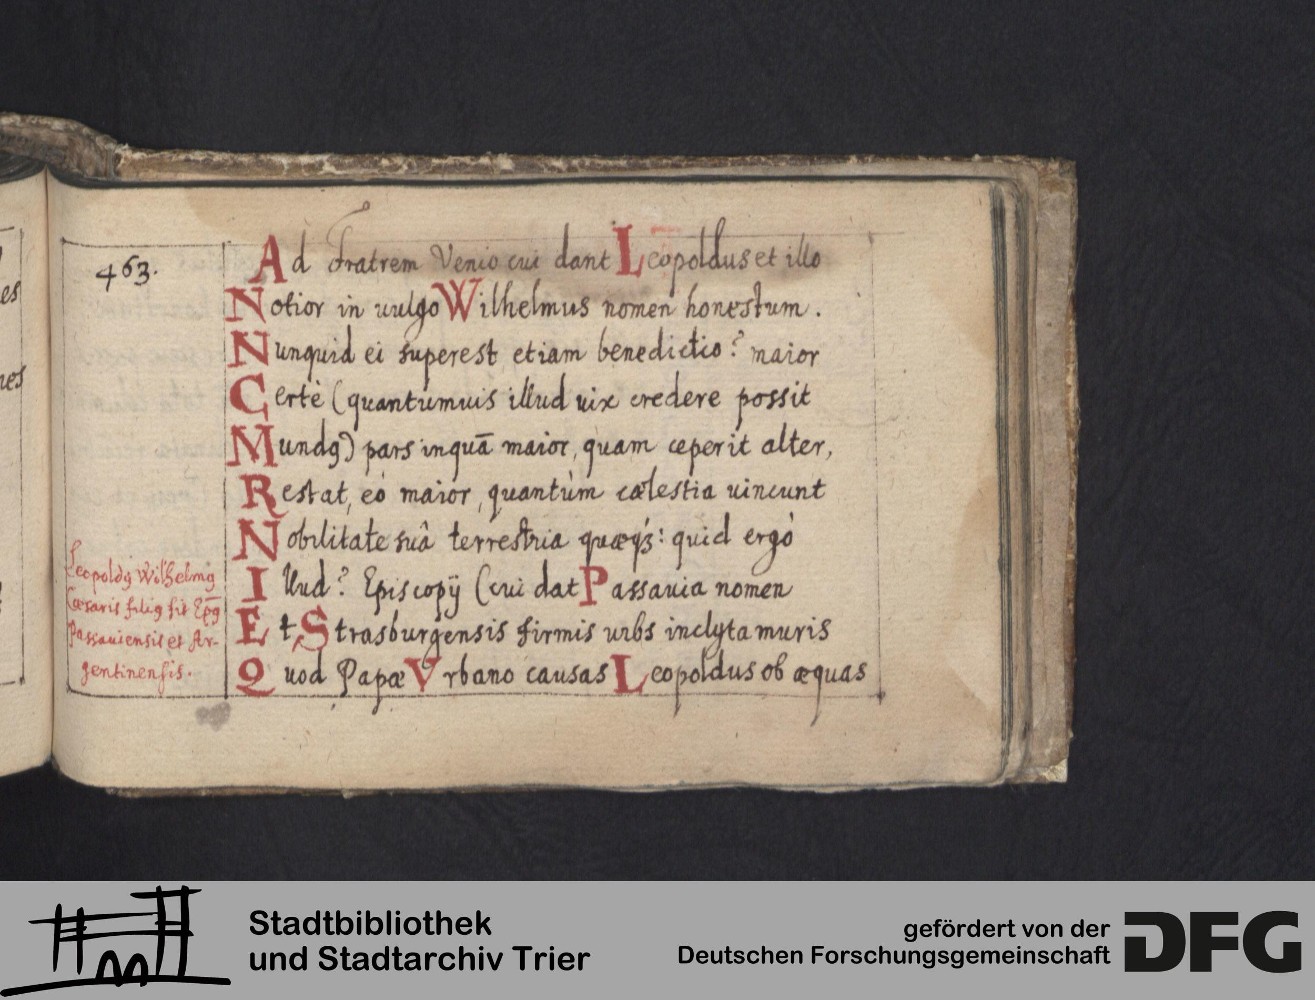 463.
Ad Fratrem Venio cui dant Leopoldus et illo
Notior in uulgo Wilhelmus nomen honestum.
Nunquid ei superest etiam benedictio? maior
Certè (quantumuis illud uix credere possit
Mundꝰ) pars inquā maior, quam ceperit alter,
Restat, eò maior, quantùm cælestia uincunt
Nobilitate suâ terrestria quæqꝫ: quid ergò
Illud? Episcopij (cui dat Passauia nomen
Et Strasburgensis firmis urbs inclyta muris
Quod Papæ Vrbano causas Leopoldus ob æquas
Leopoldꝰ Wilhelmꝰ
Cæsaris filiꝰ fit Ep̄ꝰ
Passauiensis et Ar-
gentinensis.
es
nes
Stadtbibliothek
und Stadtarchiv Trier
gefördert von der
Deutschen Forschungsgemeinschaft
DFG